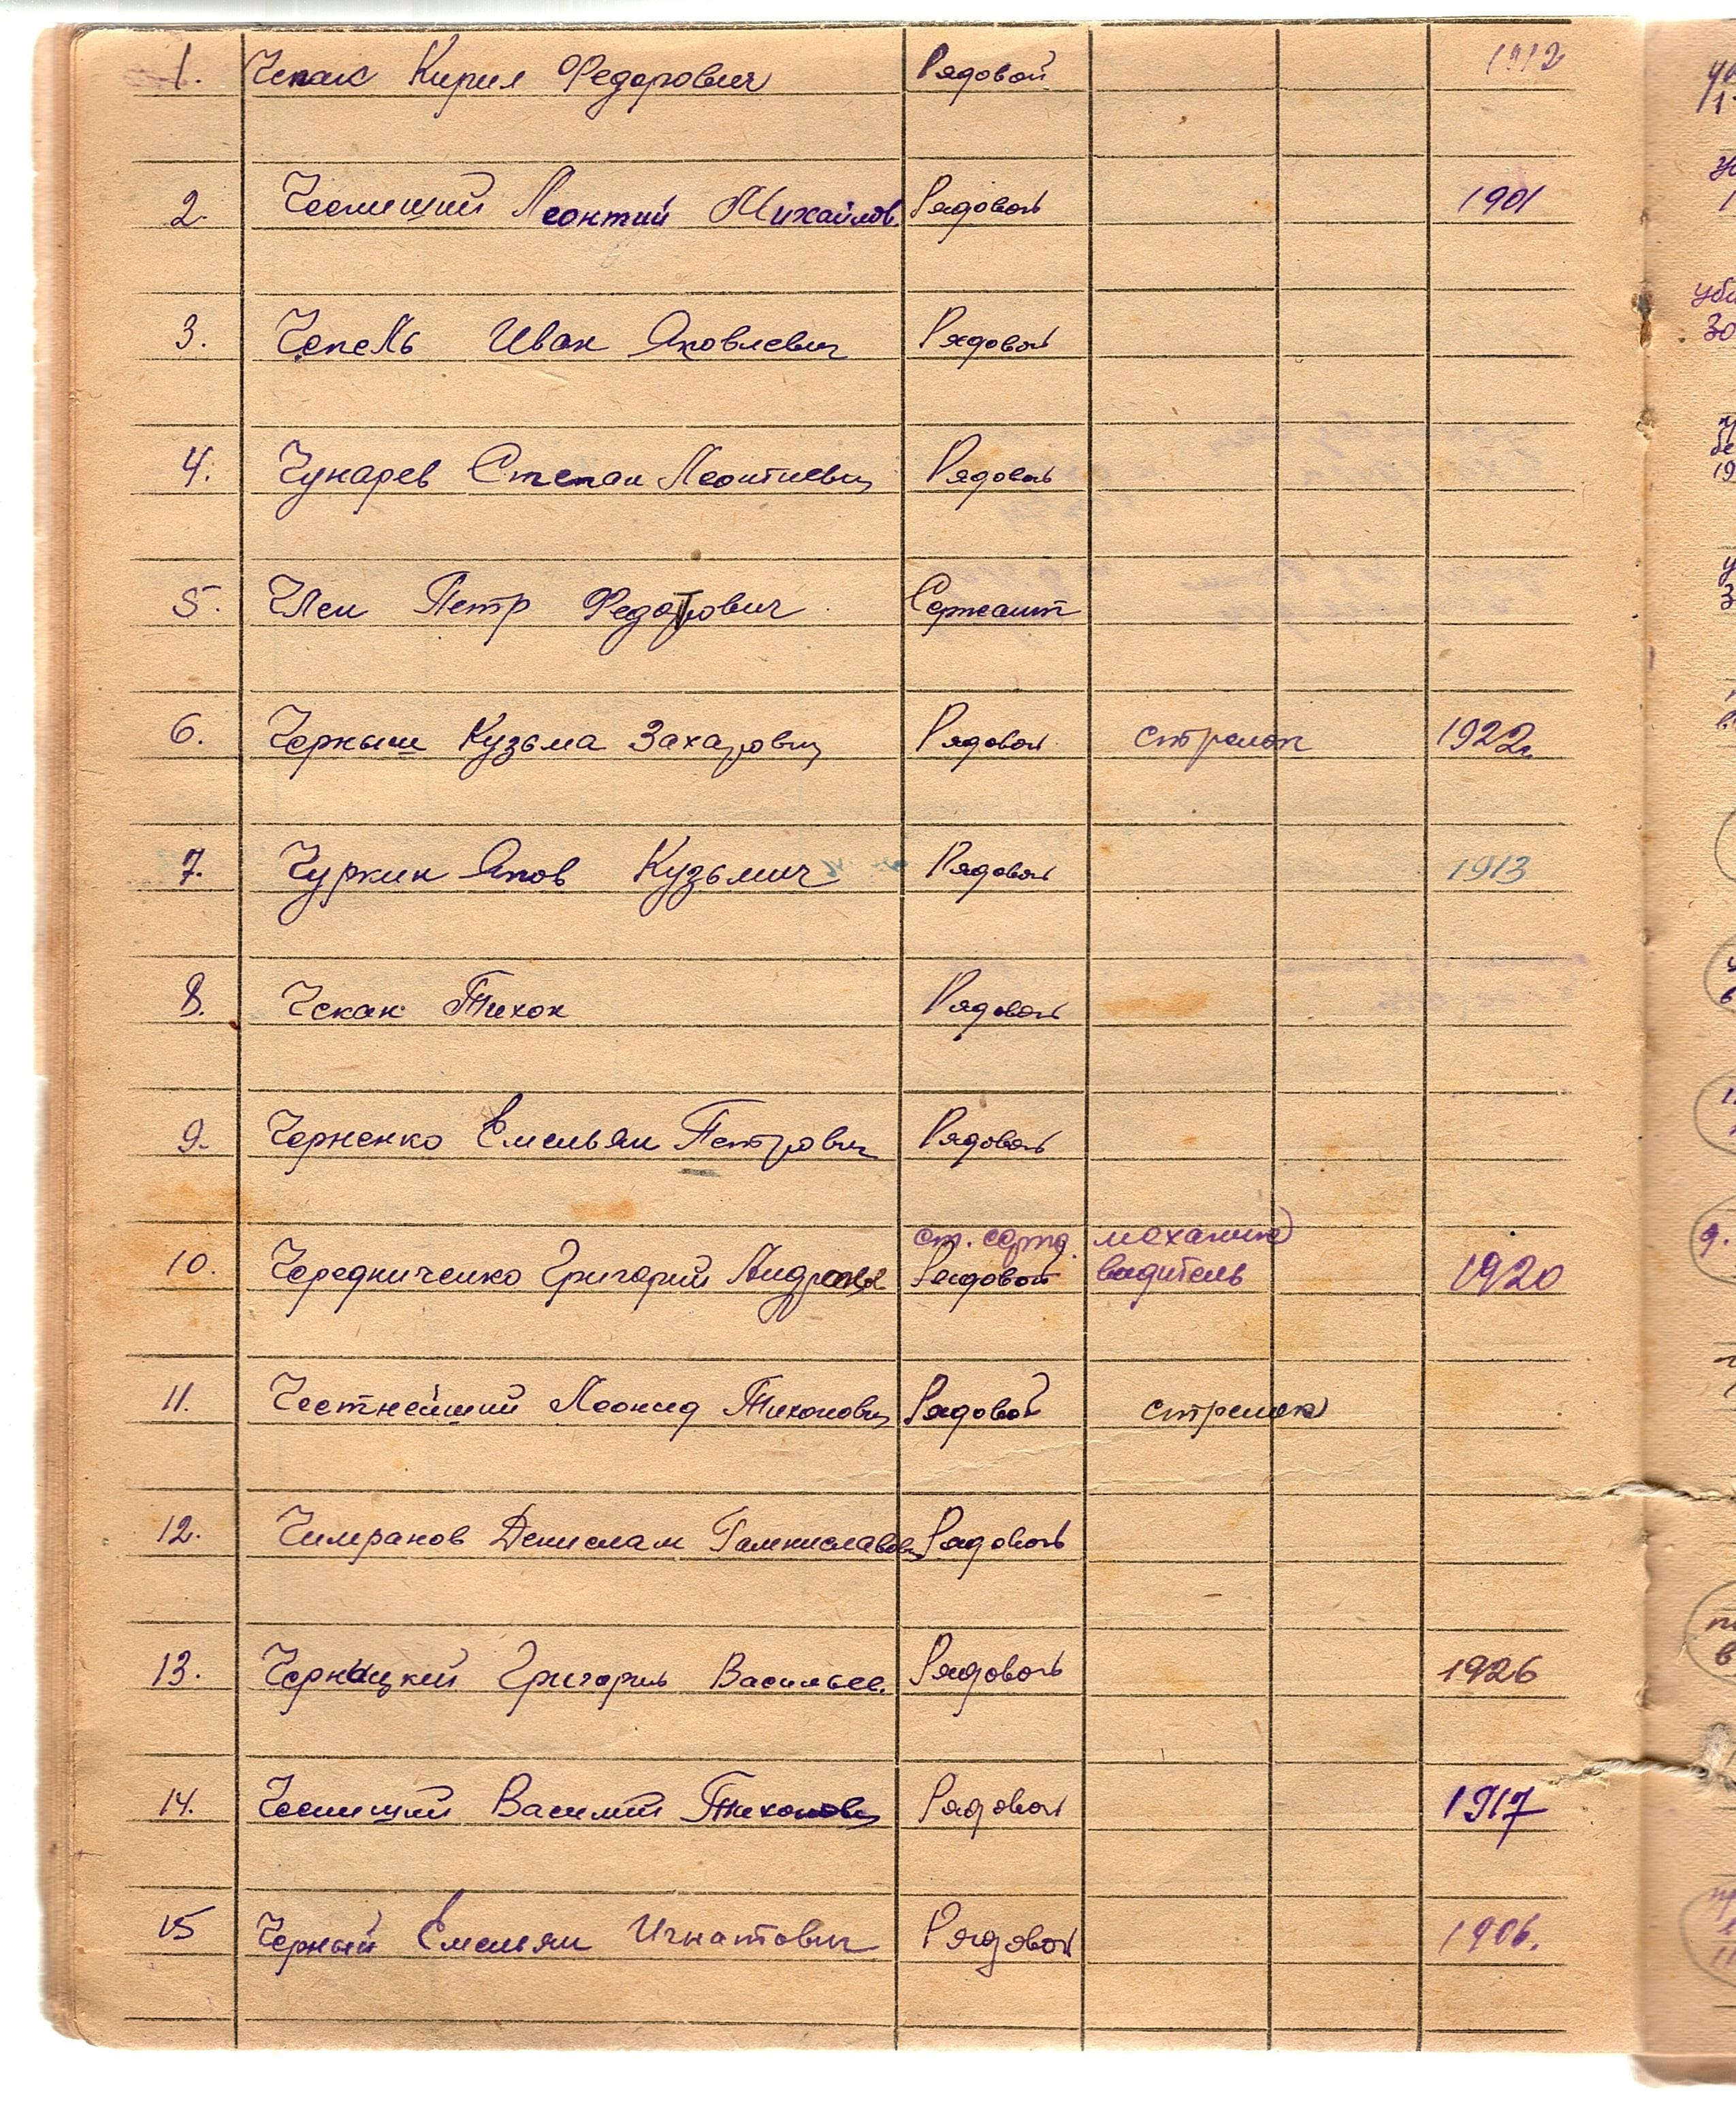 1. Чепак Кирил Федорович Рядовой 1912
2. Чеснищий Леонтий Михайлов. Рядовой 1901
3. Чепель Иван Яковлевич Рядовой
4. Чунарев Степан Леонтиевич Рядовой
5. Член Петр Федотович Сержант
6. Черныш Кузьма Захарович Рядовой стрелок 1922г.
7. Чуркин Яков Кузьмич Рядовой 1913
8. Чекан Тихон Рядовой
9. Черненко Емельян Петрович Рядовой
ст. серж. механик
10. Чередниченко Григорий Рядовой водитель 1920
11. Честнейший Леонид Тихонович Рядовой стрелок
12. Чимранов Денислам Рядовой
13. Черницкий Григорий Васильев. Рядовой 1926
14. Чеснищий Василий Тихонович Рядовой 1917
15 Черный Емельян Игнатович Рядовой 1906.